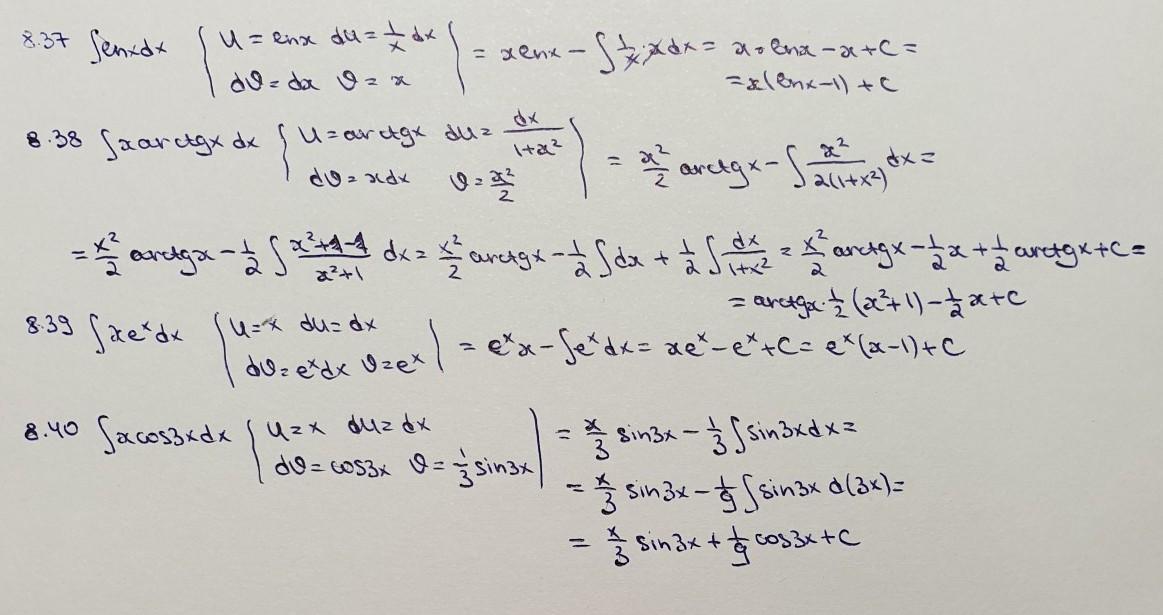 8.37 ∫lnxdx { u = lnx du = 1/x dx
dv = dx v = x } = xlnx − ∫ 1/x · x dx = x·lnx − x + C =
= x(lnx−1) + C
8.38 ∫xarctgx dx { u = arctgx du = dx/(1+x²)
dv = xdx v = x²/2 } = x²/2 arctgx − ∫ x²/(2(1+x²)) dx =
= x²/2 arctgx − 1/2 ∫ (x²+1−1)/(x²+1) dx = x²/2 arctgx − 1/2 ∫dx + 1/2 ∫ dx/(1+x²) = x²/2 arctgx − 1/2 x + 1/2 arctgx + C =
= arctgx · 1/2 (x²+1) − 1/2 x + C
8.39 ∫xeˣdx { u = x du = dx
dv = eˣdx v = eˣ | = eˣx − ∫eˣdx = xeˣ − eˣ + C = eˣ(x−1) + C
8.40 ∫xcos3xdx { u = x du = dx
dv = cos3x v = 1/3 sin3x | = x/3 sin3x − 1/3 ∫sin3xdx =
= x/3 sin3x − 1/9 ∫sin3x d(3x) =
= x/3 sin3x + 1/9 cos3x + C